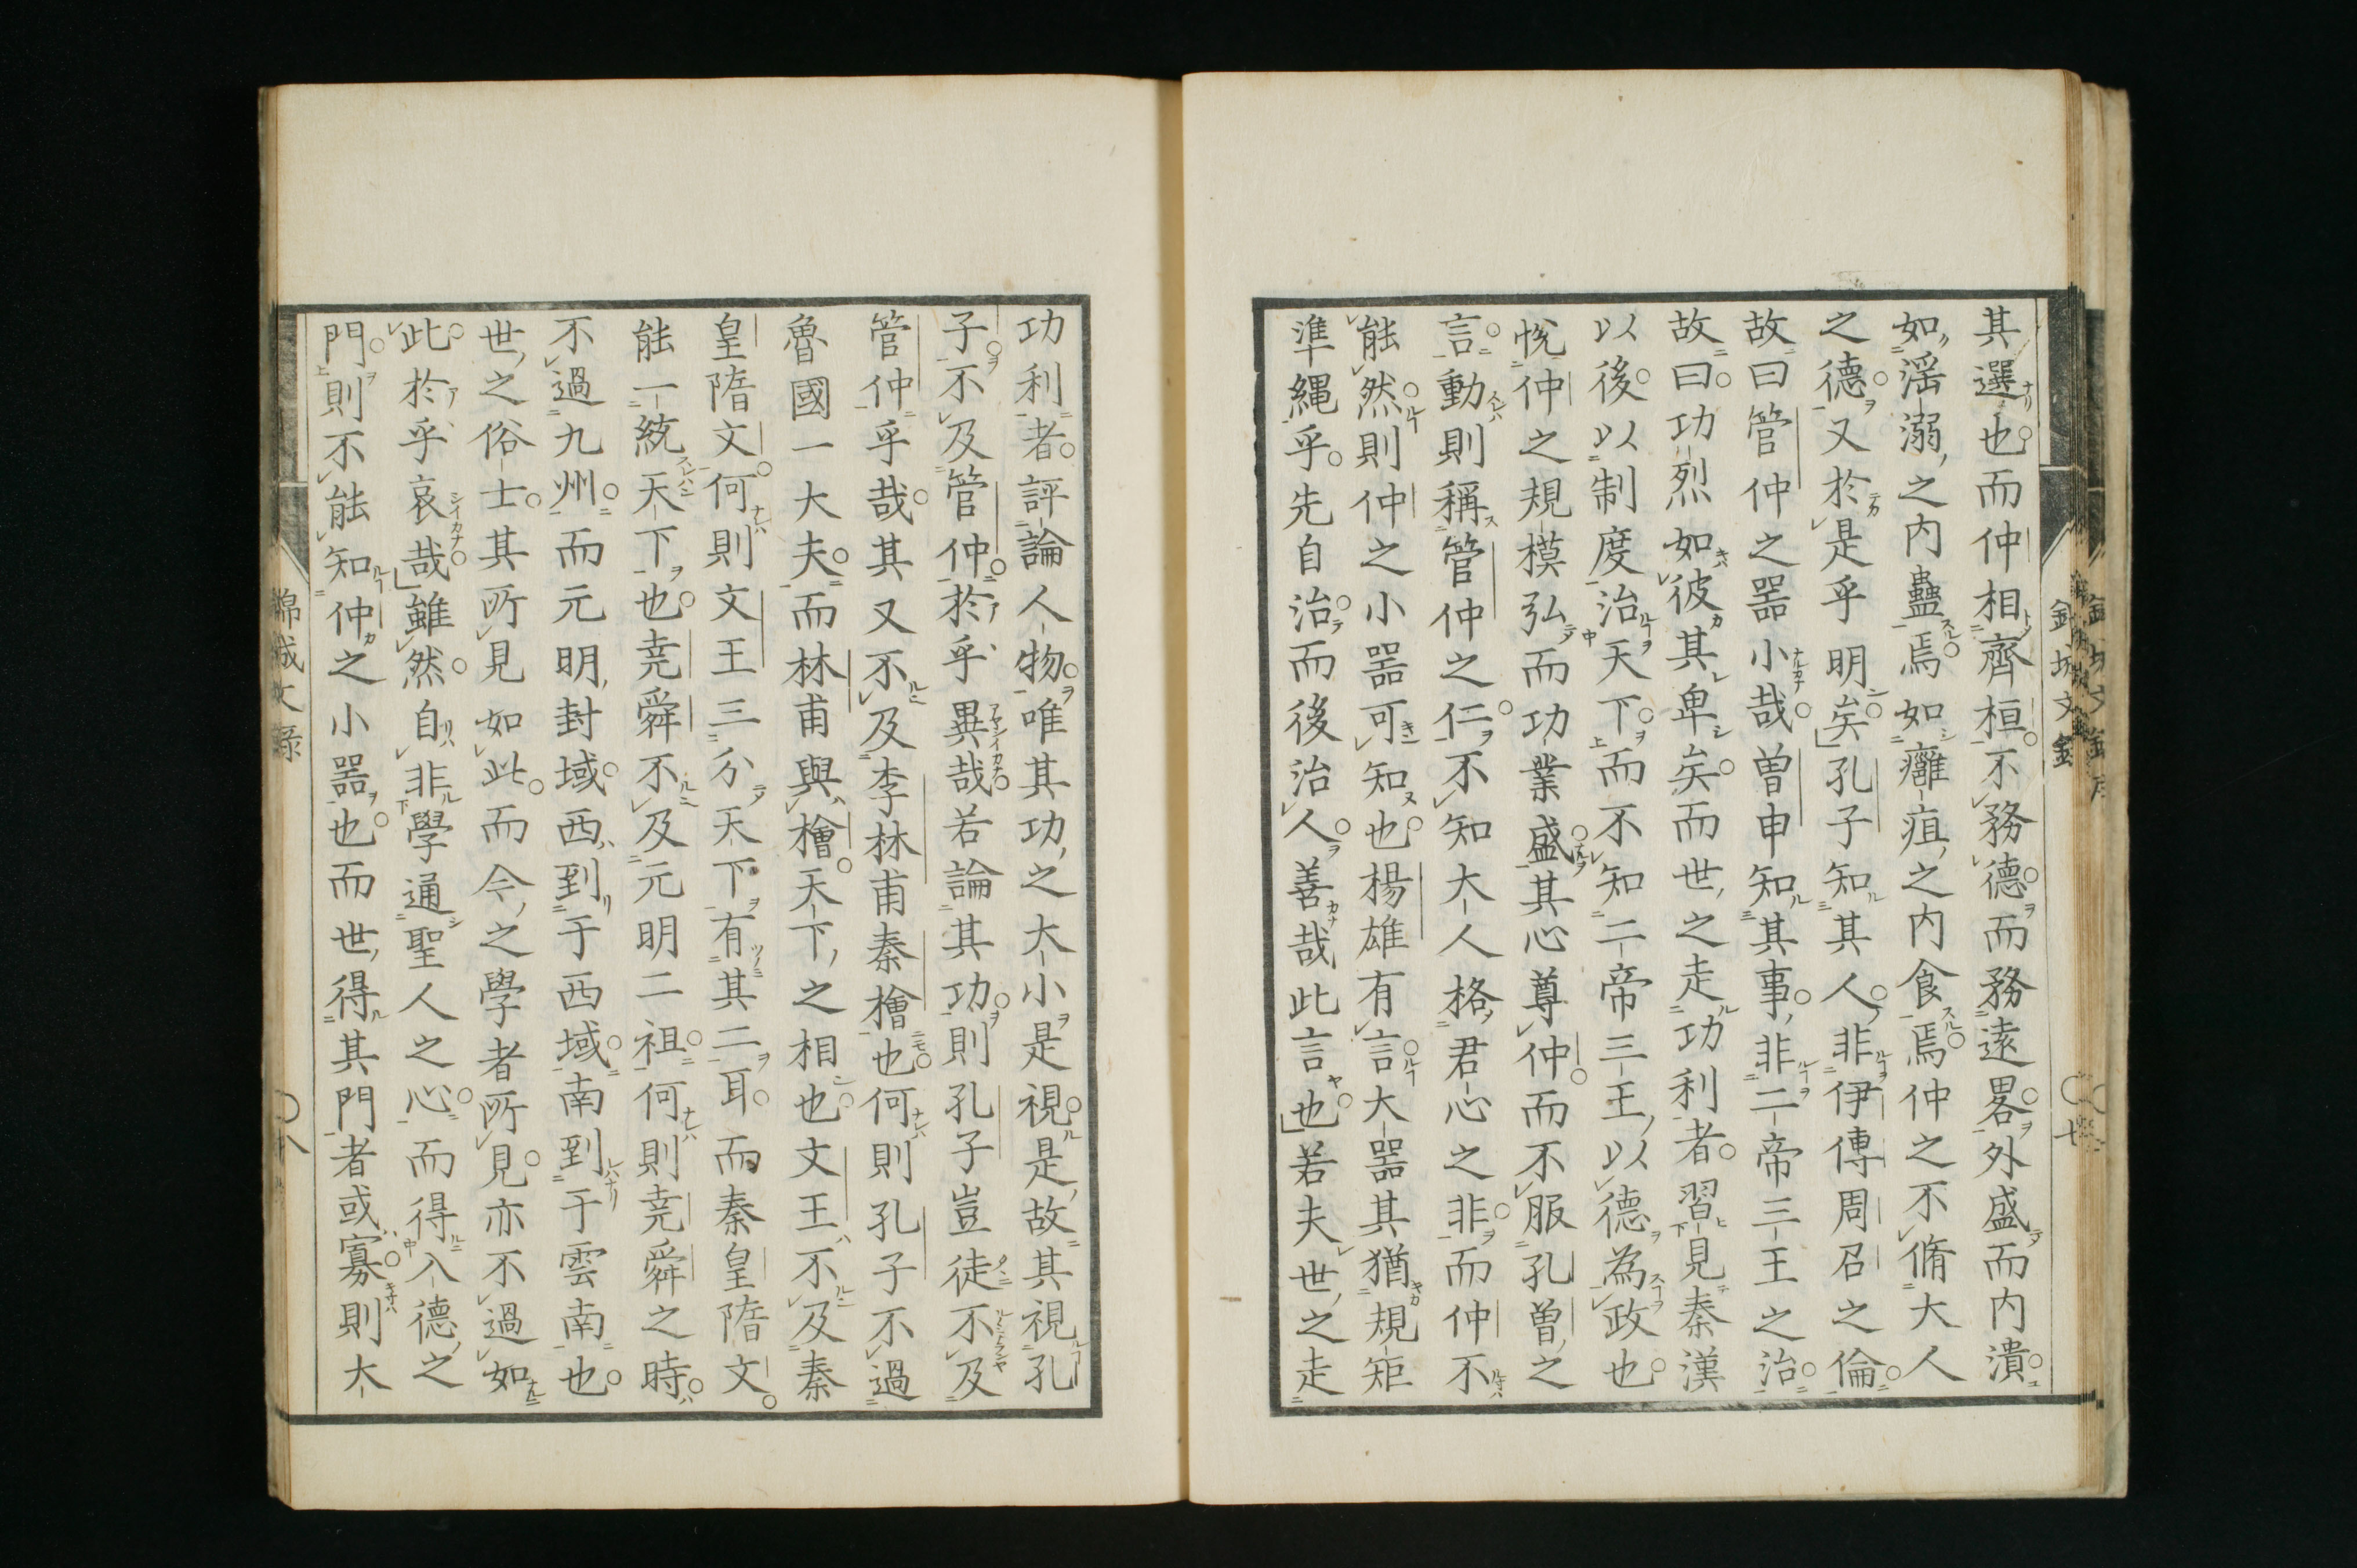 其選也而仲相齊桓不務德而務遠畧外盛而内潰
如淫溺之内蠱焉如癰疽之内食焉仲之不脩大人
之德又於是乎明矣孔子知其人非伊傅周召之倫
故曰管仲之噐小哉曽申知其事非二帝三王之治
故曰功烈如彼其卑矣而世之走功利者習見秦漢
以後以制度治天下而不知二帝三王以德為政也
悅仲之規模弘而功業盛其心尊仲而不服孔曽之
言動則稱管仲之仁不知大人格君心之非而仲不
能然則仲之小噐可知也楊雄有言大噐其猶規矩
準繩乎先自治而後治人善哉此言也若夫世之走
功利者評論人物唯其功之大小是視是故其視孔
子不及管仲於乎異哉若論其功則孔子豈徒不及
管仲乎哉其又不及李林甫秦檜也何則孔子不過
魯國一大夫而林甫與檜天下之相也文王不及秦
皇隋文何則文王三分天下有其二耳而秦皇隋文
能一統天下也堯舜不及元明二祖何則堯舜之時
不過九州而元明封域西到于西域南到于雲南也
世之俗士其所見如此而今之學者所見亦不過如
此於乎哀哉雖然自非學通聖人之心而得入德之
門則不能知仲之小噐也而世得其門者或寡則大
錦城文録